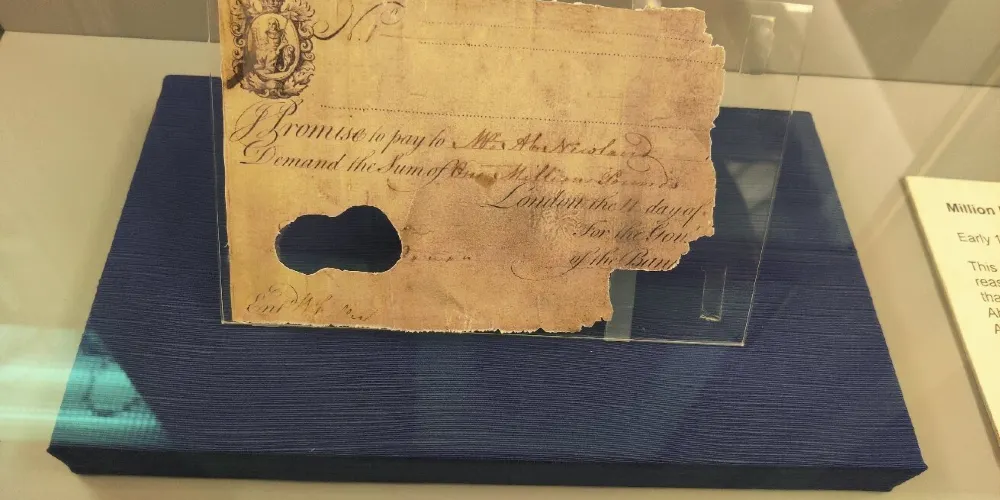 N.º
I Promise to pay to Mr. Ab. Newland
Demand the Sum of One Million Pounds
London the 11 day of
For the Gov.r
of the Ban
Ent.d
Million
Early 1
This
reas
tha
Ab
A